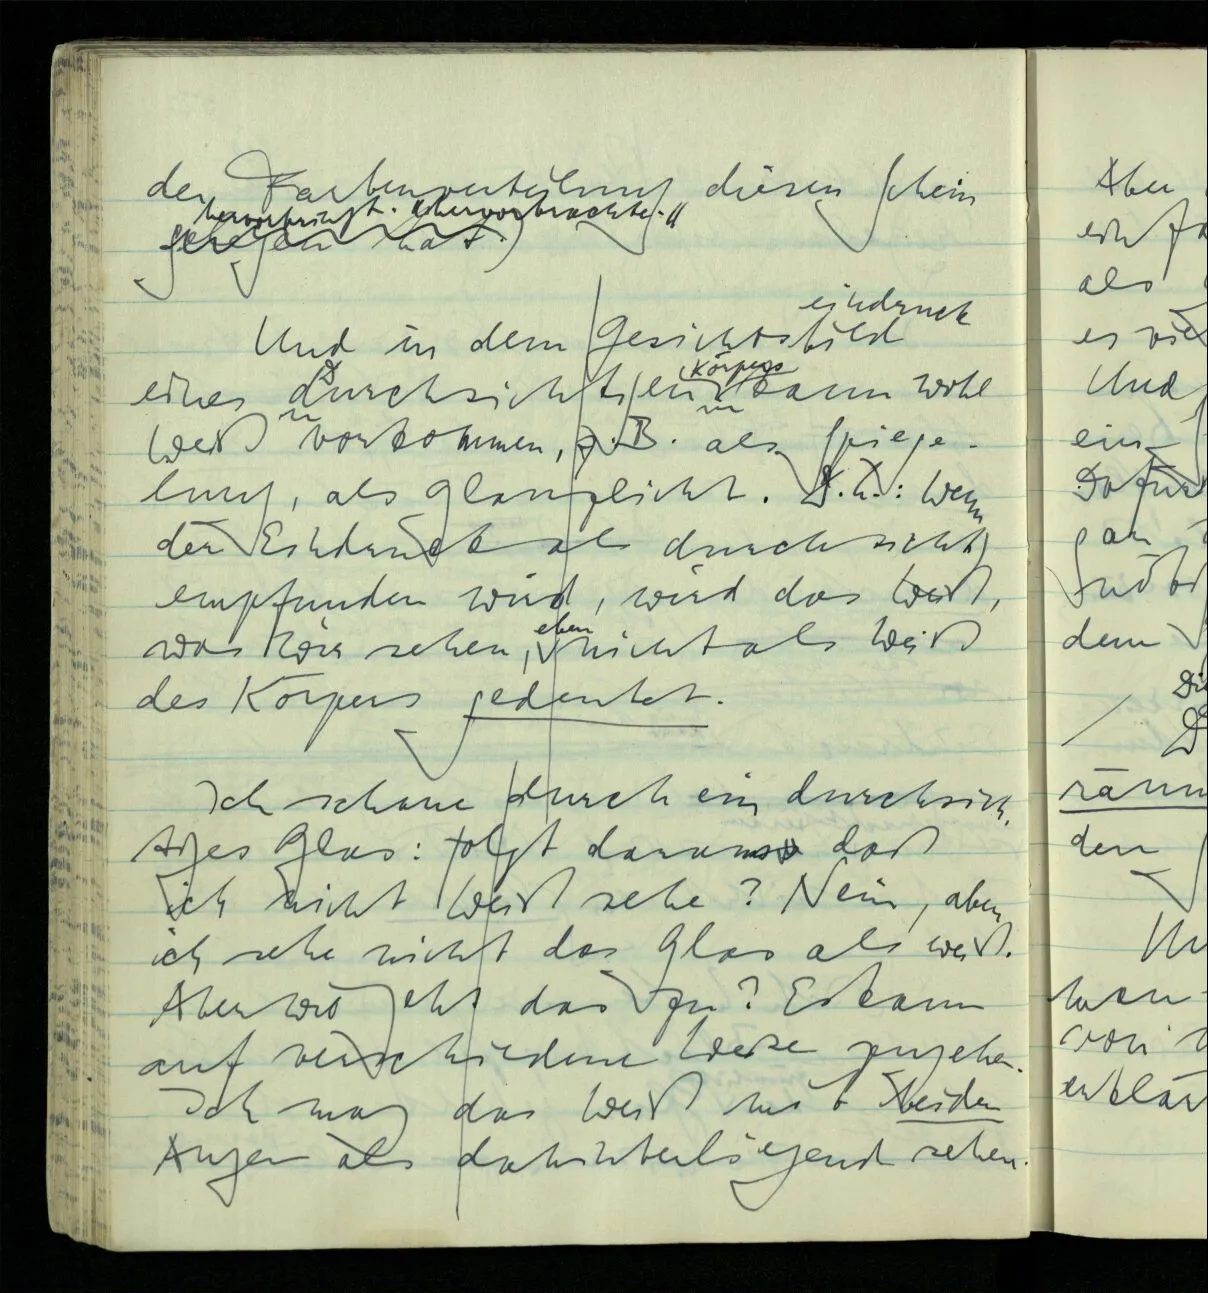 der Farbenverteilung diesen Schein
hervorbringt. (hervorbrachte.)"
gegeben hat.)
eindruck
Und in dem Gesichtsbild
Körpers
eines durchsichtigen kann wohl
Weiß vorkommen, z.B. als Spiege-
lung, als Glanzlicht. D.h.: wenn
der Eindruck als durchsichtig
empfunden wird, wird das Weiß,
eben
was wir sehen, nicht als Weiß
des Körpers gedeutet.
Ich schaue durch ein durchsich-
tiges Glas: folgt daraus daß
ich nicht Weiß sehe? Nein, aber
ich sehe nicht das Glas als weiß.
Aber wie geht das zu? Es kann
auf verschiedene Weise zugehen.
Ich mag das Weiß mit beiden
Augen als dahinterliegend sehen.
Aber
als
Und
ein
dem
den